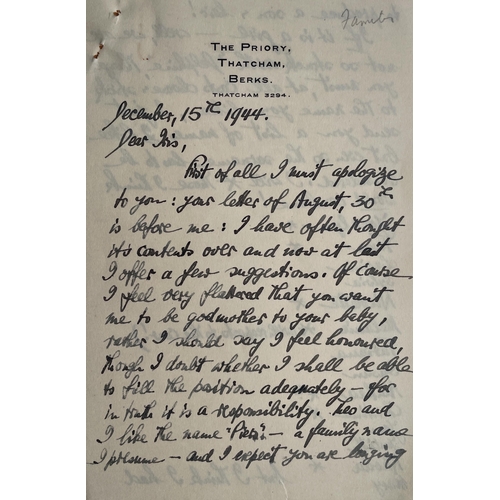 Family
THE PRIORY,
THATCHAM,
BERKS.
THATCHAM 3294.
December, 15TH 1944.
Dear Iris,
First of all I must apologize
to you : your letter of August, 30TH
is before me : I have often thought
its contents over and now at last
I offer a few suggestions. Of course
I feel very flattered that you want
me to be godmother to your baby,
rather I should say I feel honoured,
though I doubt whether I shall be able
to fill the position adequately — for
in truth it is a responsibility. Leo and
I like the name "Piers" — a family name
I presume — and I expect you are longing